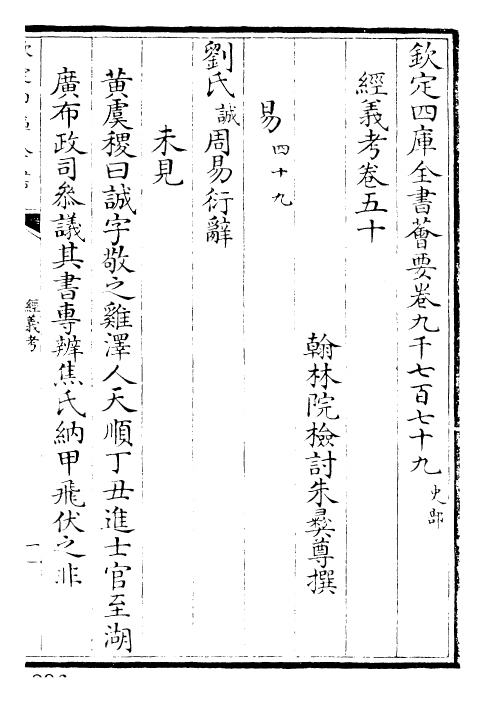 欽定四庫全書薈要卷九千七百七十九 史部
經義考卷五十
翰林院檢討朱彞尊撰
易 四十九
劉氏誠周易衍辭
未見
黃虞稷曰誠字敬之雞澤人天順丁丑進士官至湖
廣布政司叅議其書專辨焦氏納甲飛伏之非
經義考
一